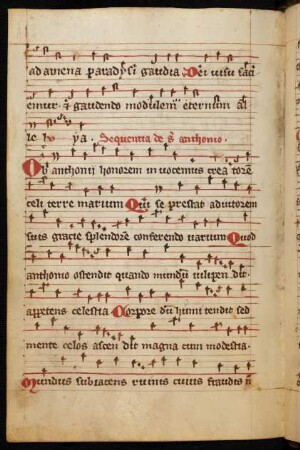 ad amena paradysi gaudia Dei visu saci
emur ⁊ gaudendo modulem̄ eternum al
le lu ya. Sequentia de s̄ anthonio.
Ob anthonij honorem in vocemus creatorē
celi terre marium Qui se prestat adiutorem
suis gracie splendorē conferendo uarium Quod
anthonio ostendit quando mundū vilipendit
appetens celestia Corpore dū humi tendit sed
mente celos ascendit magna cum modestia.
Mundus subiacens ruinis cuius fraudis n̄